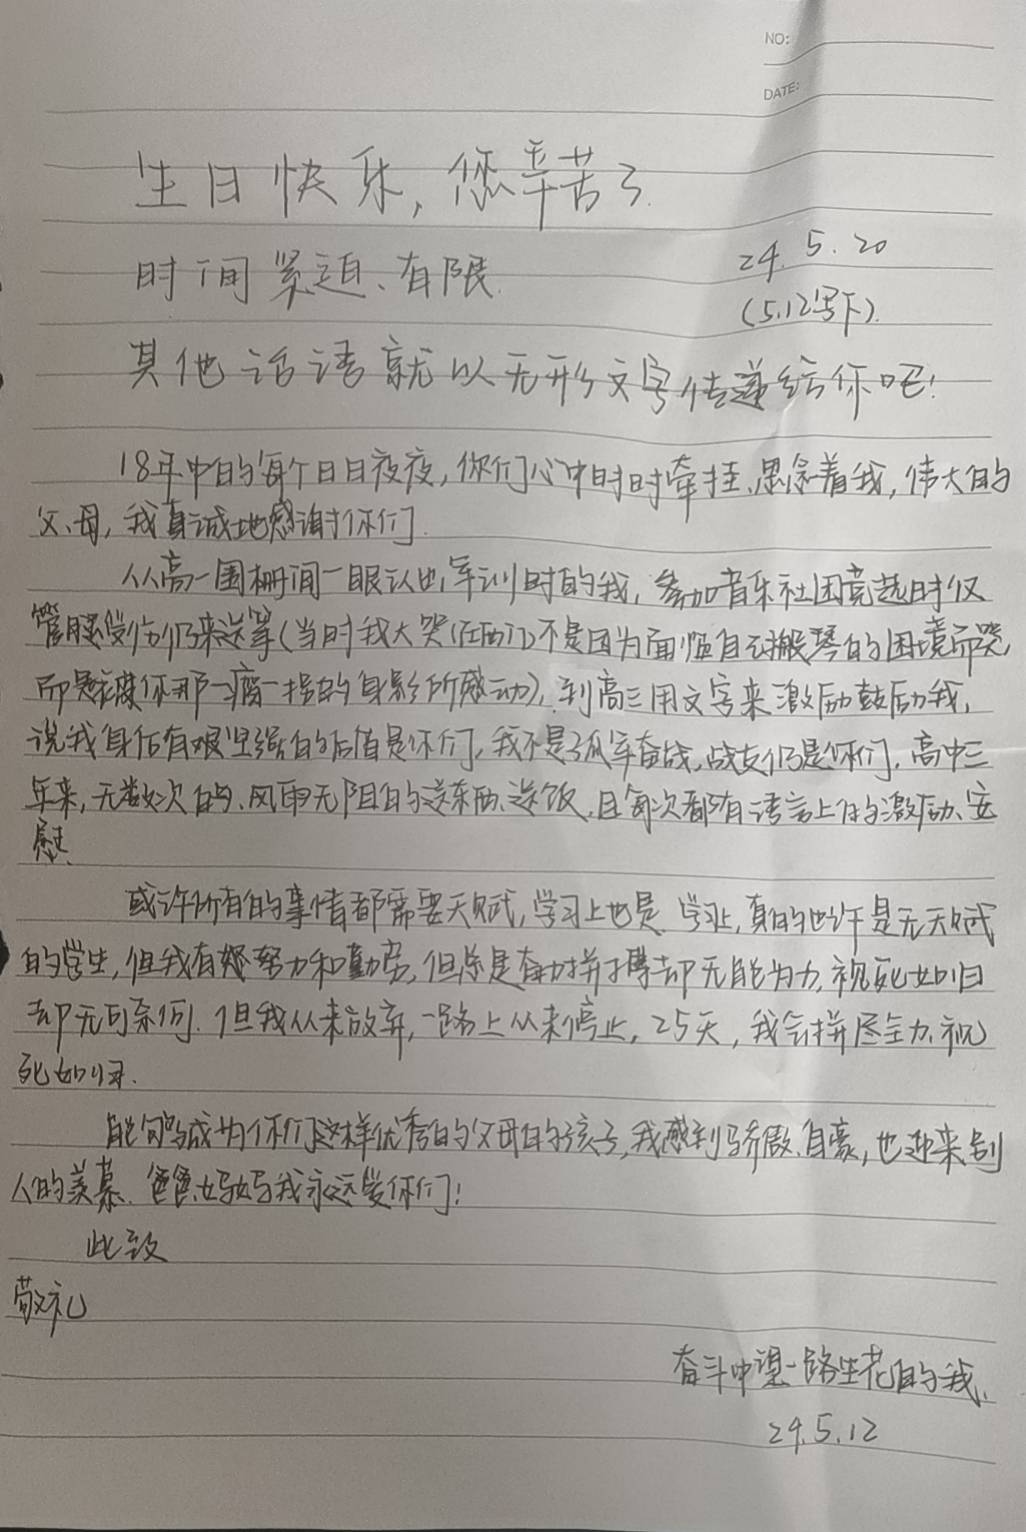 NO:
DATE:
生日快乐,您辛苦了.
时间紧迫、有限.
24.5.20
(5.12写下).
其他话语就以无形文字传递给你吧!
18年中的每个日日夜夜,你们心中时时牵挂、思念着我,伟大的
父、母,我真诚地感谢你们.
从从高一围栅间一眼认出军训时的我,参加音乐社团竞选时仅
管腿受伤仍来送筝(当时我大哭(在西门)不是因为面临自己搬琴的困境而哭,
而是被你那一瘸一拐的身影所感动),到高三用文字来激励鼓励我,
说我身后有艰坚强的后盾是你们,我不是孤军奋战,战友仍是你们,高中三
年来,无数次的、风雨无阻的送东西、送饭,且每次都有语言上的激励、安
慰.
或许所有的事情都需要天赋,学习上也是.学习上,真的也许是无天赋
的学生,但我有努力和勤劳,但总是奋力拼搏却无能为力,视死如归
却无可奈何.但我从未放弃,一路上从未停止,25天,我会拼尽全力、视
死如归.
能够成为你们这样优秀的父母的孩子,我感到骄傲、自豪,也迎来别
人的羡慕.爸爸、妈妈我永远爱你们!
此致
敬礼
奋斗中望一路生花的我.
24.5.12